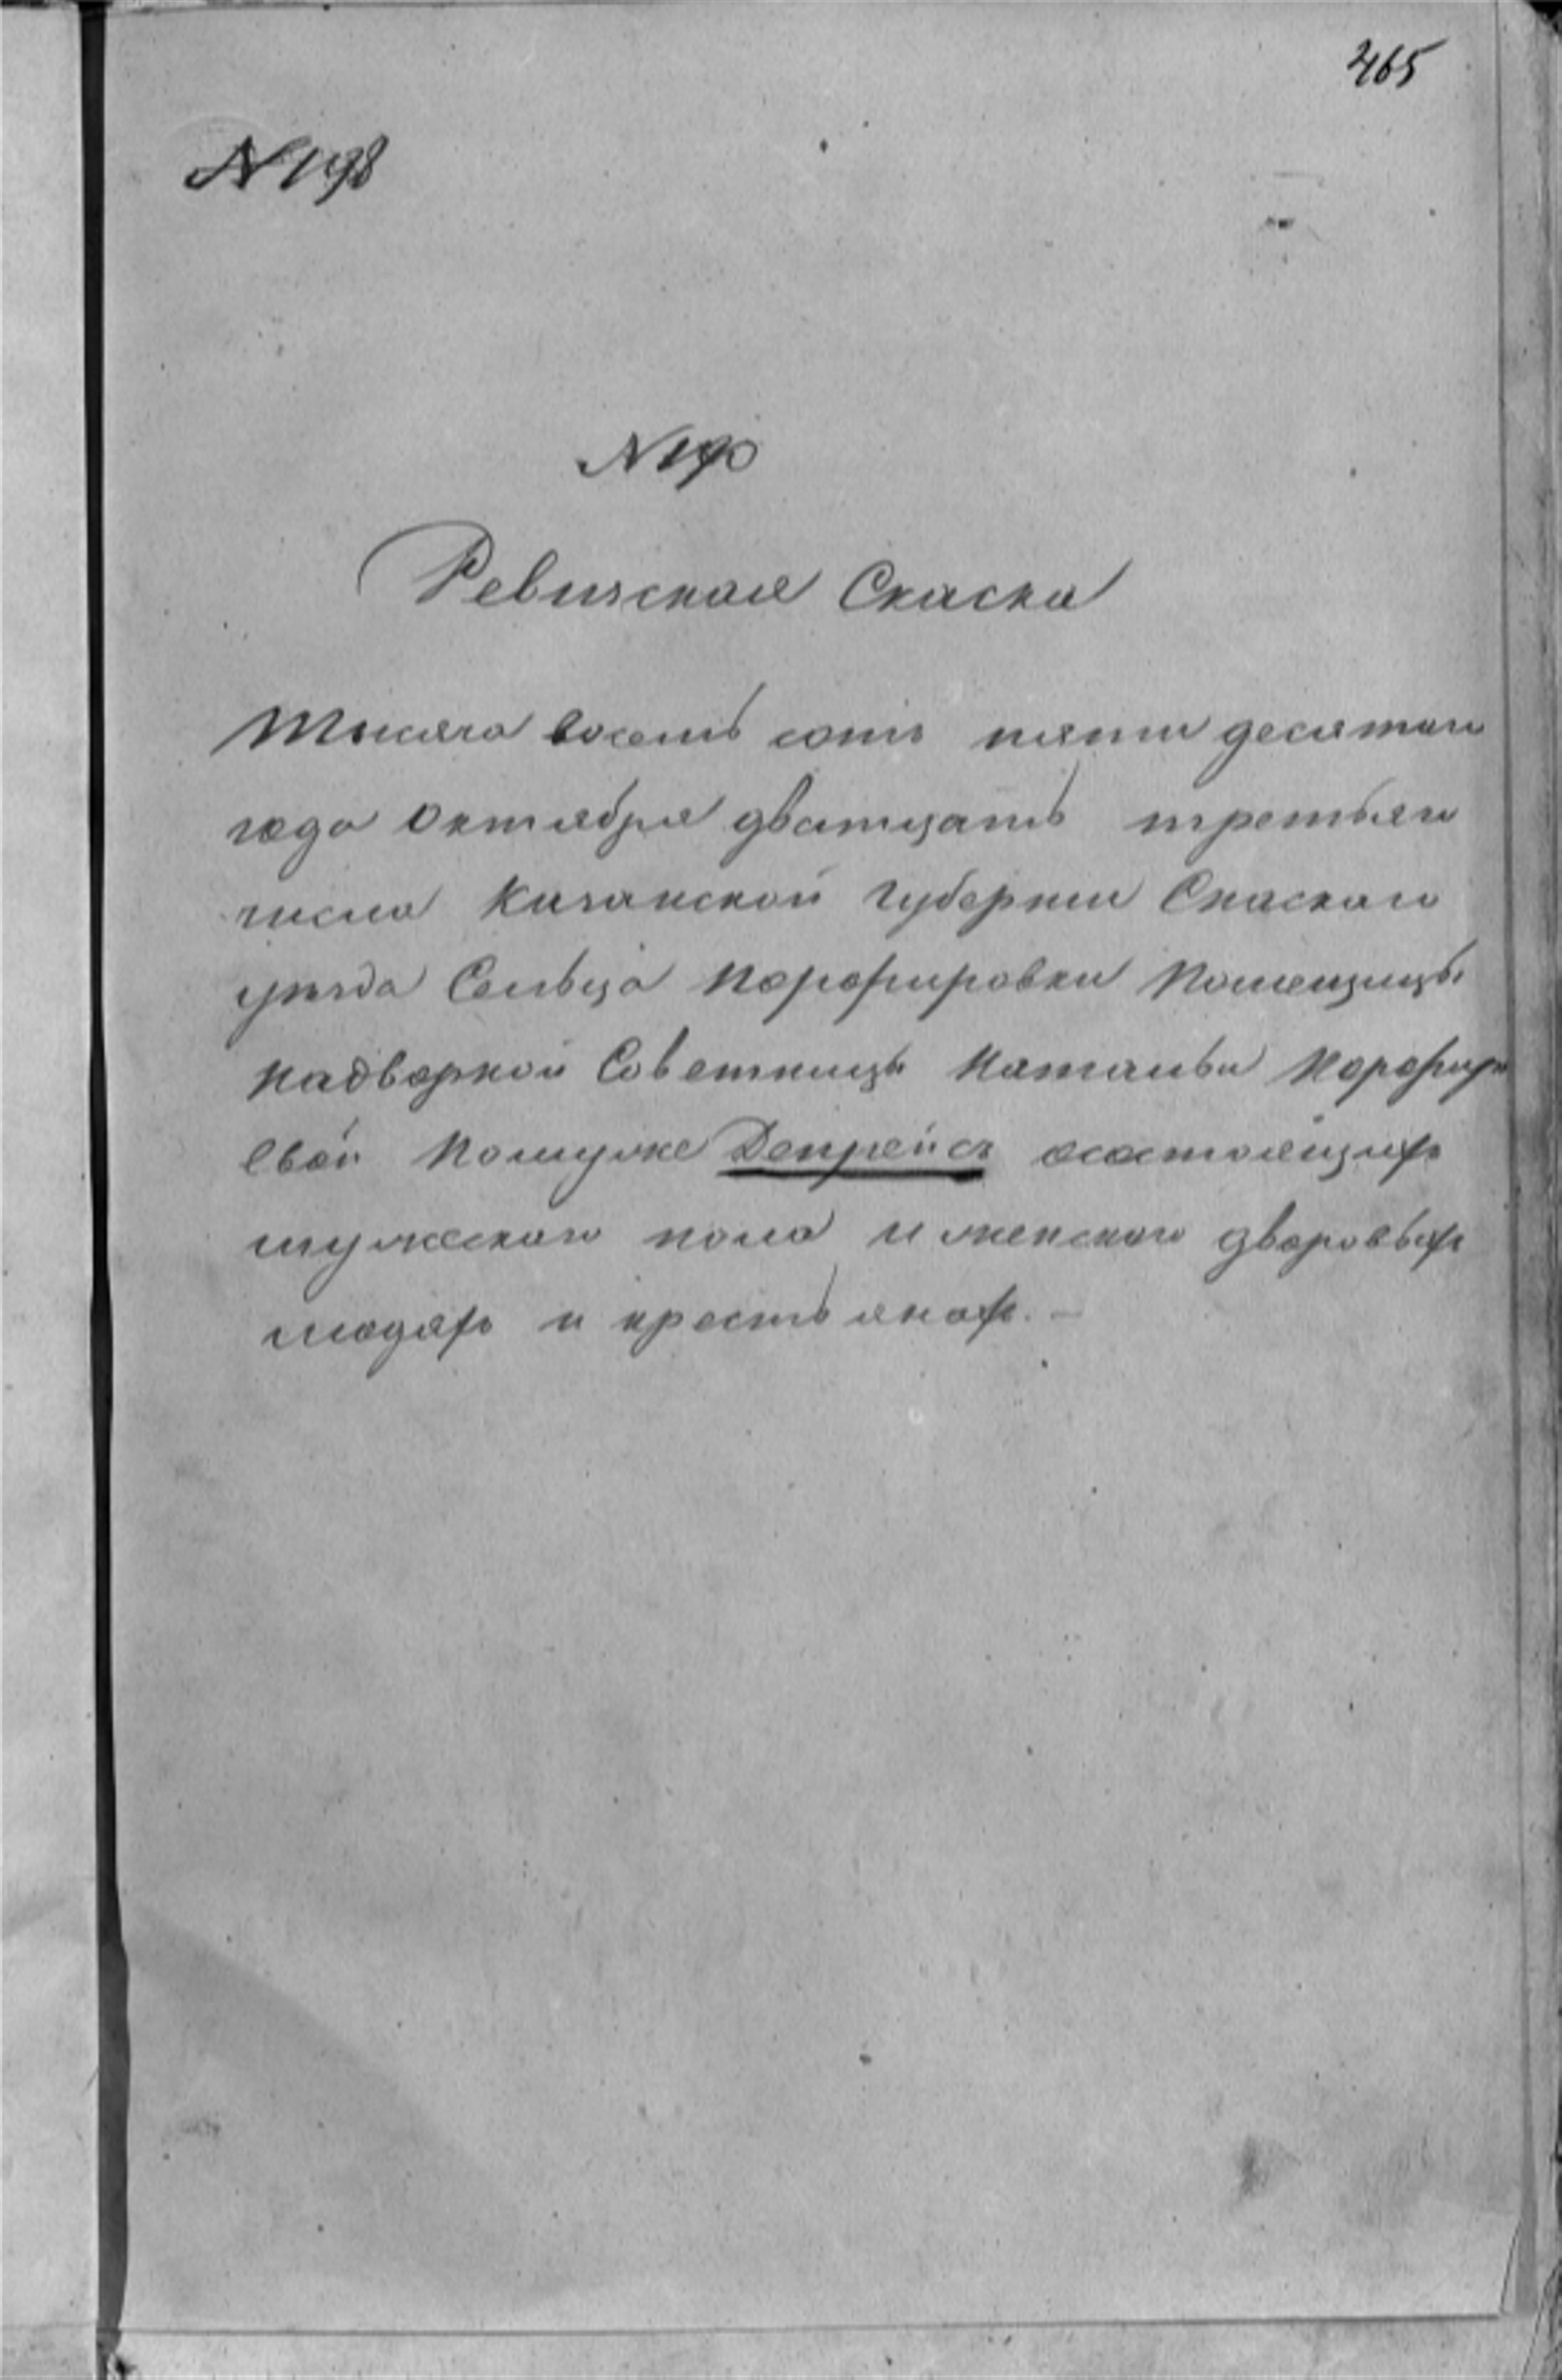 465
N 198
N 190
Ревизская Скаска
Тысяча восемь сотъ пяти десятаго
года Октября дватцать третьяго
числа Казанской Губернии Спаскаго
уѣзда Сельца Порфировки Помещицы
Надворной Советницы Натальи Порфирь
евой по муже Депрейсъ о состоящихъ
мужескаго пола и женскаго дворовыхъ
людяхъ и крестьянахъ. –